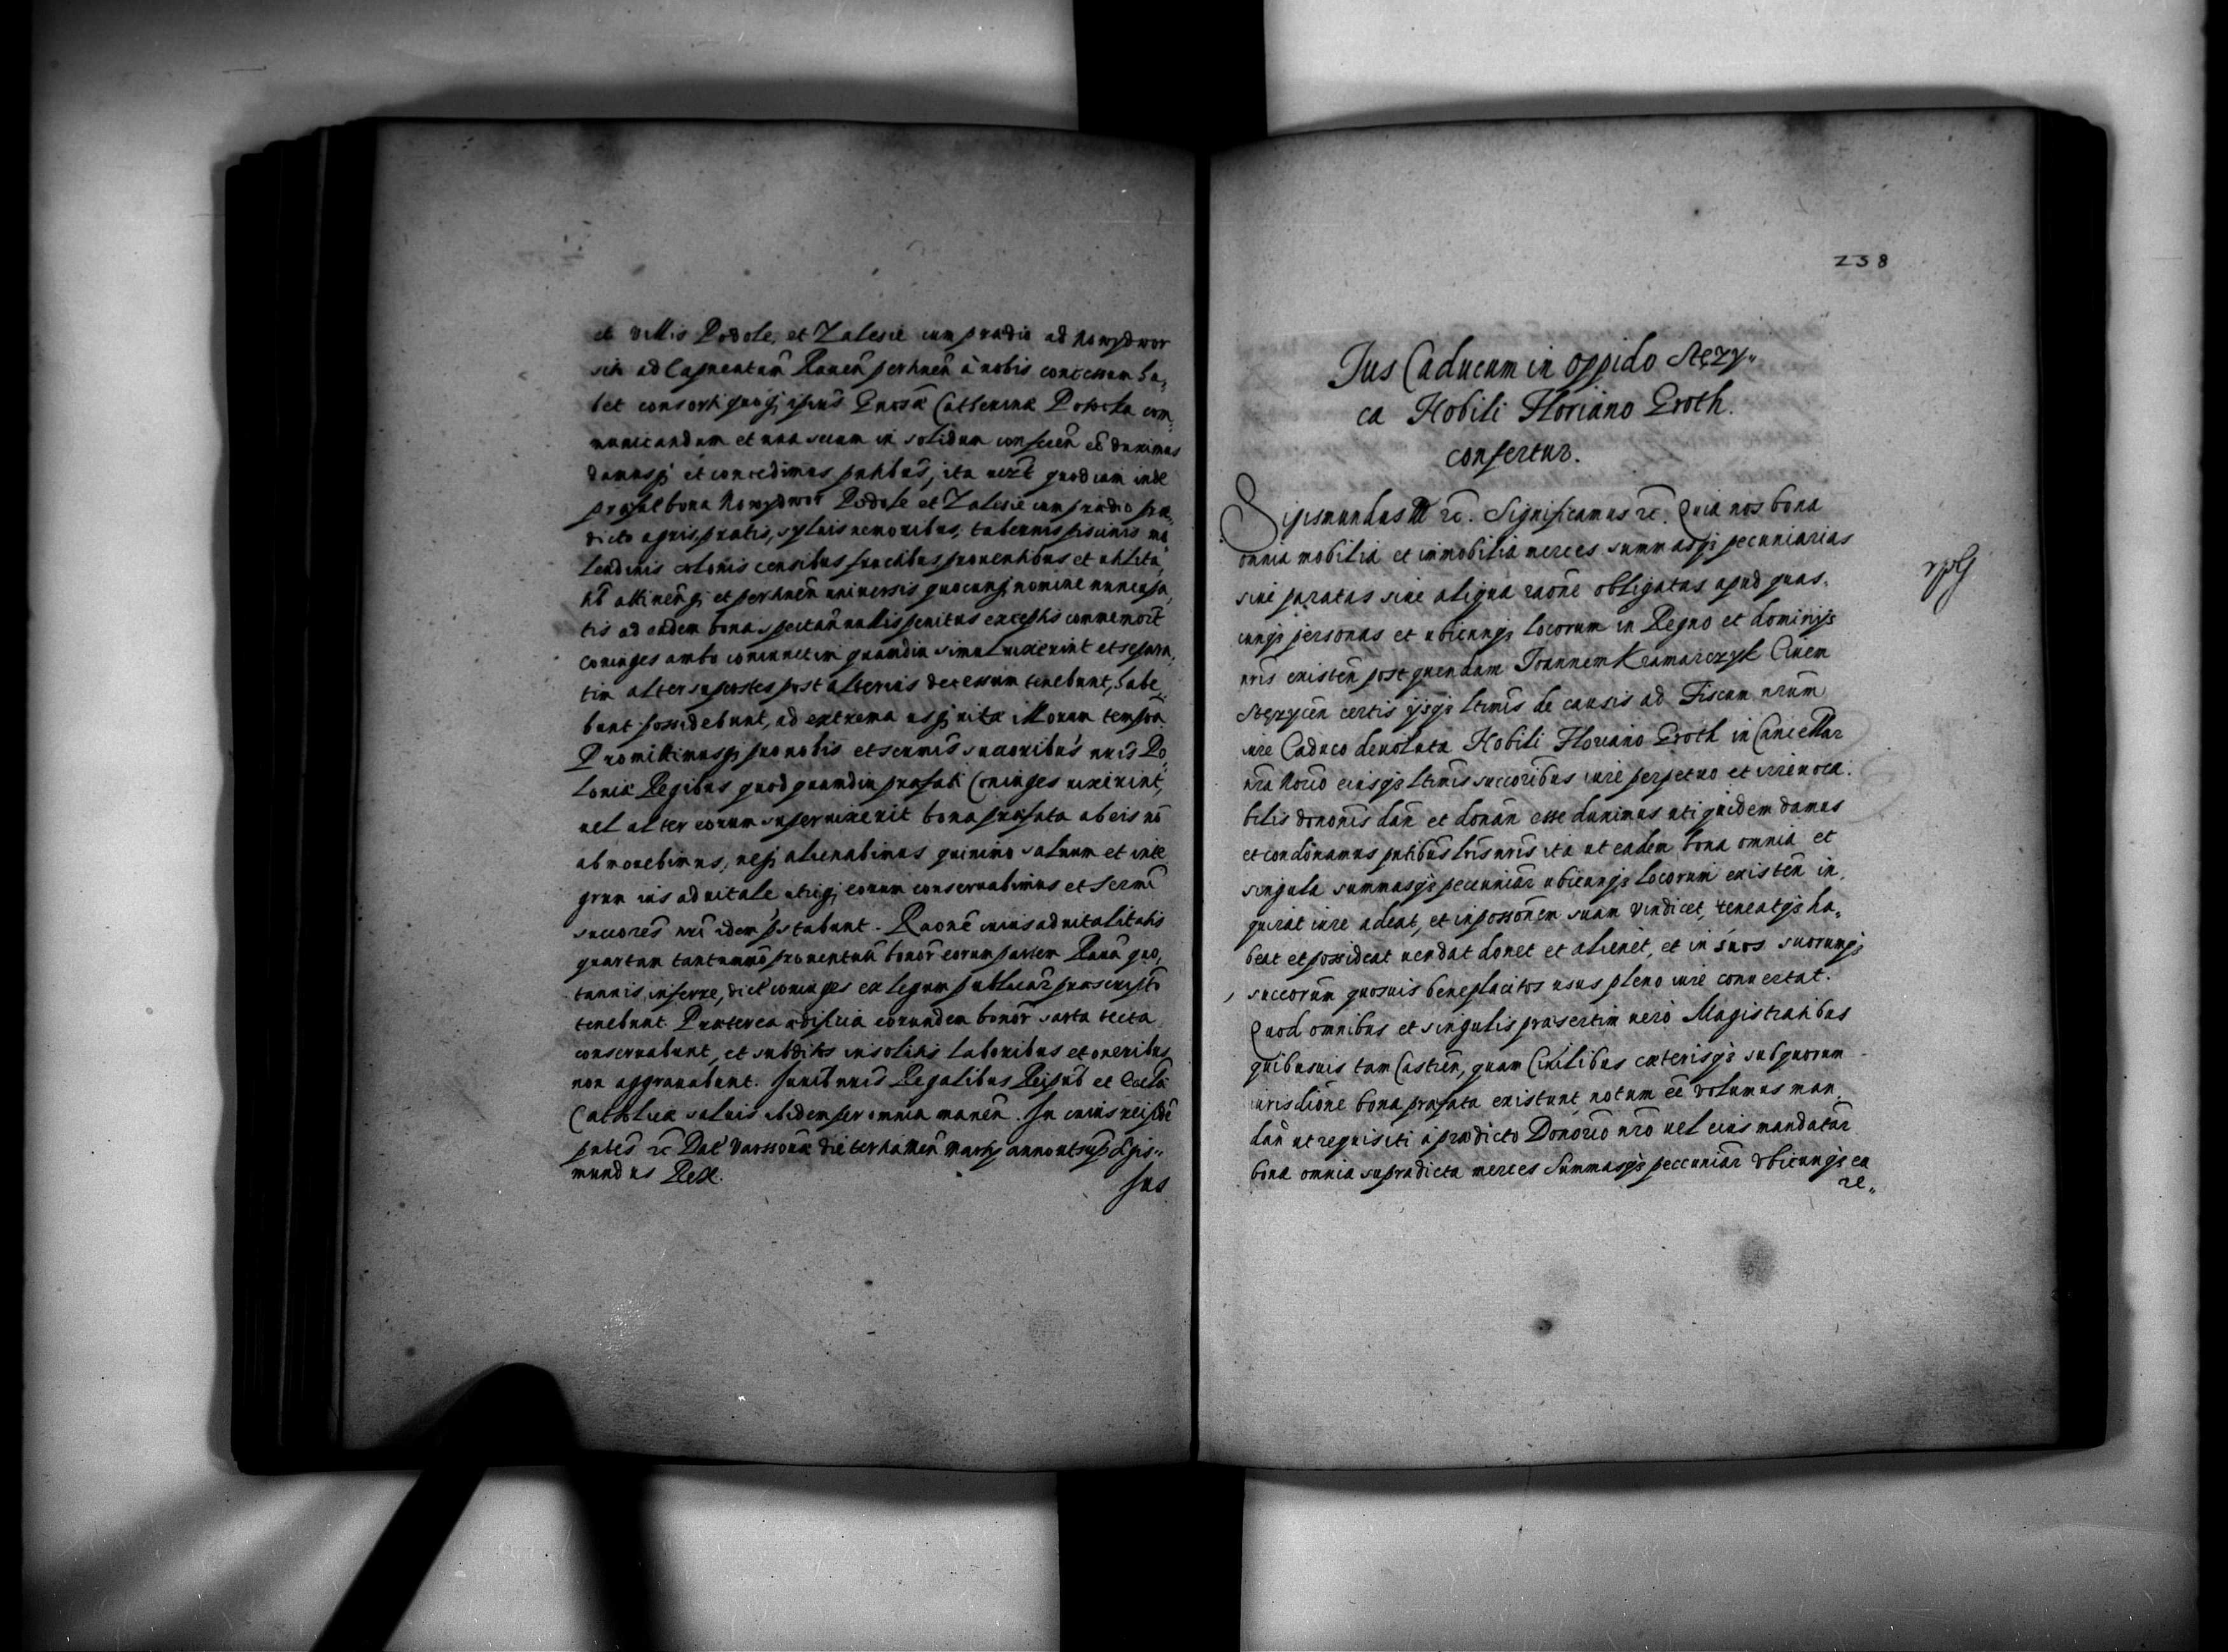 et villis Podole, et Zalesie cum prædio ad Nowydwor
siti ad Capneatum Rauen̄ pertinen̄ à nobis concessum ha„
bet consorti quoq; ipsius G̃nosæ Catherinæ Potocka com„
municandum et una secum in solidum conferen̄ eē duximus
damusq; et concedimus p̄ntibus, ita uizt quod iam inde
præfat bona Nowydwor Podole et Zalesie cum prædio præ„
dicto agris, pratis, syluis nemoribus, tabernis piscinis mo
lendinis colonis censibus fructibus prouentibus et utilita„
tib̄ attinen̄q; et pertinen̄ uniuersis quocunq; nomine nuncupa„
tis ad eadem bona spectan̄ nullis penitus exceptis commemort̄
coniuges ambo coniunctim quamdiu simul uixerint et separa„
tim alter superstes post alterius decessum tenebunt, habe„
bunt possidebunt, ad extrema usq; vitæ illorum tempora
Promittimusq; pro nobis et serm̄is succoribus nr̄is Po„
loniæ Regibus quod quamdiu præfati Coniuges uixerint,
uel alter eorum superuixerit bona præfata ab eis nō
abmouebimus, neq; alienabimus quinimo saluum et inte
grum ius aduitale utriq; eorum conseruabimus et serm̄i
succores̄ nr̄i idem p̄stabunt. Raōne cuius aduitalitatis
quartam tantummō prouentuū bonor̄ eorum partem Rauā quo„
tannis inferre, dict̄ coniuges ex legum publicar̄ præscripto
tenebunt. Præterea ædificia eorundem bonor̄ sarta tecta
conseruabunt, et subditos insolitis laboribus et oneribus
non aggrauabunt. Jurib̄ nr̄is Regalibus Reipub̄ et Ecclæ
Catholicæ saluis ibidem per omnia manen̄. In cuius rei fidē
p̄ntes̄ rc̄ Dat̄ Varssouiæ die Martij anno ut sup̄ Sigis„
mundus Rex.
Jus
238
Jus Caducum in oppido Stęzy„
ca Nobili Floriano Groth.
confertur.
Sigismundus III rc̄. Significamus rc̄. Quia nos bona
omnia mobilia et immobilia merces summasq; pecuniarias
siue paratas siue aliqua raōne obligatas apud quas„
cunq; personas et ubicunq; locorum in Regno et dominijs
nr̄is existen̄ post quendam Joannem Kramarczyk Ciuem
Stęzycen̄ certis ijsq; ltimis de causis ad Fiscum nr̄um
iure Caduco deuoluta Nobili Floriano Groth in Cancellar
nr̄a Norio eiusq; ltimis succoribus iure perpetuo et irreuoca„
bilis donōnis dan̄ et donan̄ esse duximus uti quidem damus
et condonamus p̄ntibus lris nr̄is ita ut eadem bona omnia et
singula summasq; pecuniar̄ ubicunq; locorum existen̄ in„
quirat iure adeat, et in possonem suam vindicet, teneatq; ha„
beat et possideat uendat donet et alienet, et in suos suorumq;
succorum quosuis beneplacitos usus pleno iure conuertat.
Quod omnibus et singulis præsertim uerò Magistratibus
quibusuis tam Castren̄, quam Ciuilibus cæterisq; sub quorum
iurisdione bona præfata existunt notum eē volumus man„
dan̄ ut requisiti à prædicto Donorio nr̄o uel eius mandatar̄
bona omnia supradicta merces Summasq; peccuniar̄ ubicunq; ea
re„